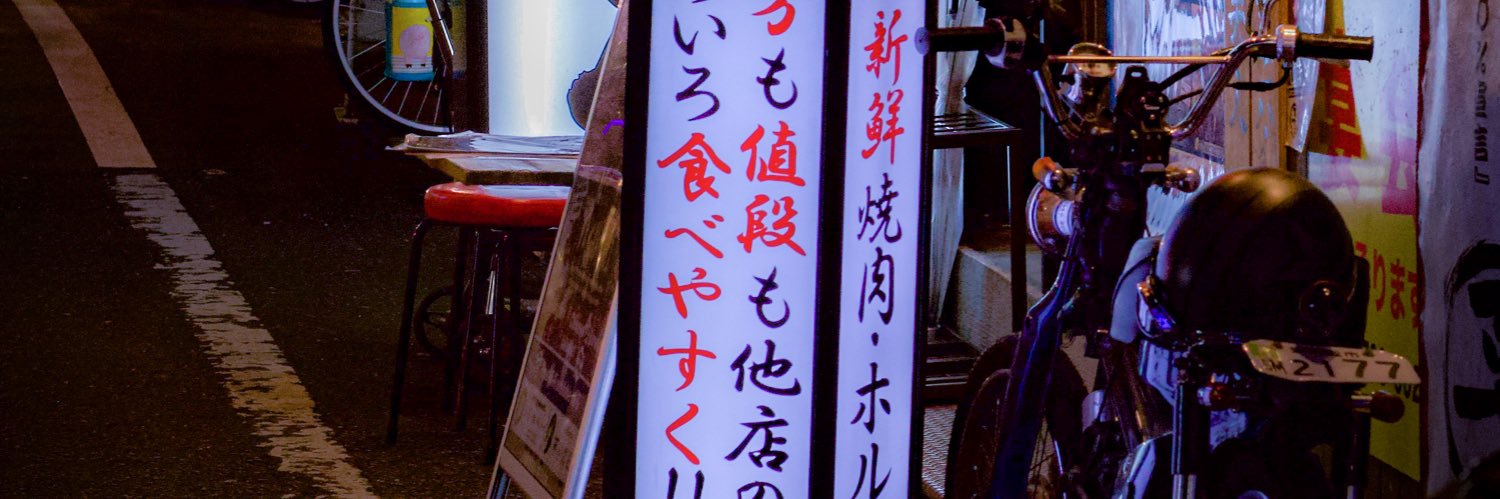 新鮮 焼肉・ホル
も値段も他店の
いろ食べやすくリ
ります
2177